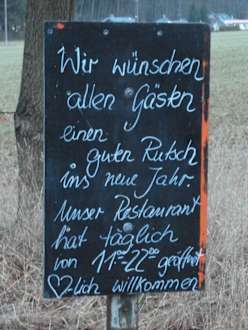 Wir wünschen
allen Gästen
einen
guten Rutsch
ins neue Jahr.
Unser Restaurant
hat täglich
von 11⁰⁰-22⁰⁰ geöffnet
♡lich willkommen